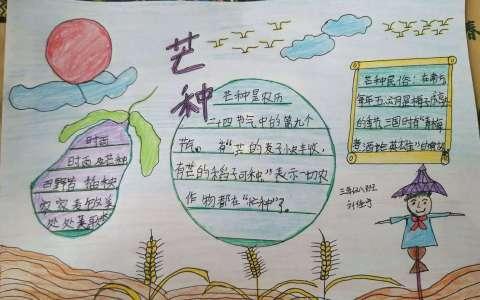 芒种
芒种是农历
二十四节气中的第九个
节气。有“芒的麦子快收,
有芒的稻子可种”表示一切农
作物都在“忙种”了。
时雨
时雨及芒种
四野皆插秧
家家麦饭美
处处菱歌
芒种民俗:在南方
每年五、六月是梅子成熟
的季节,三国时有“青梅
煮酒论英雄”的典故
三年级八班
春